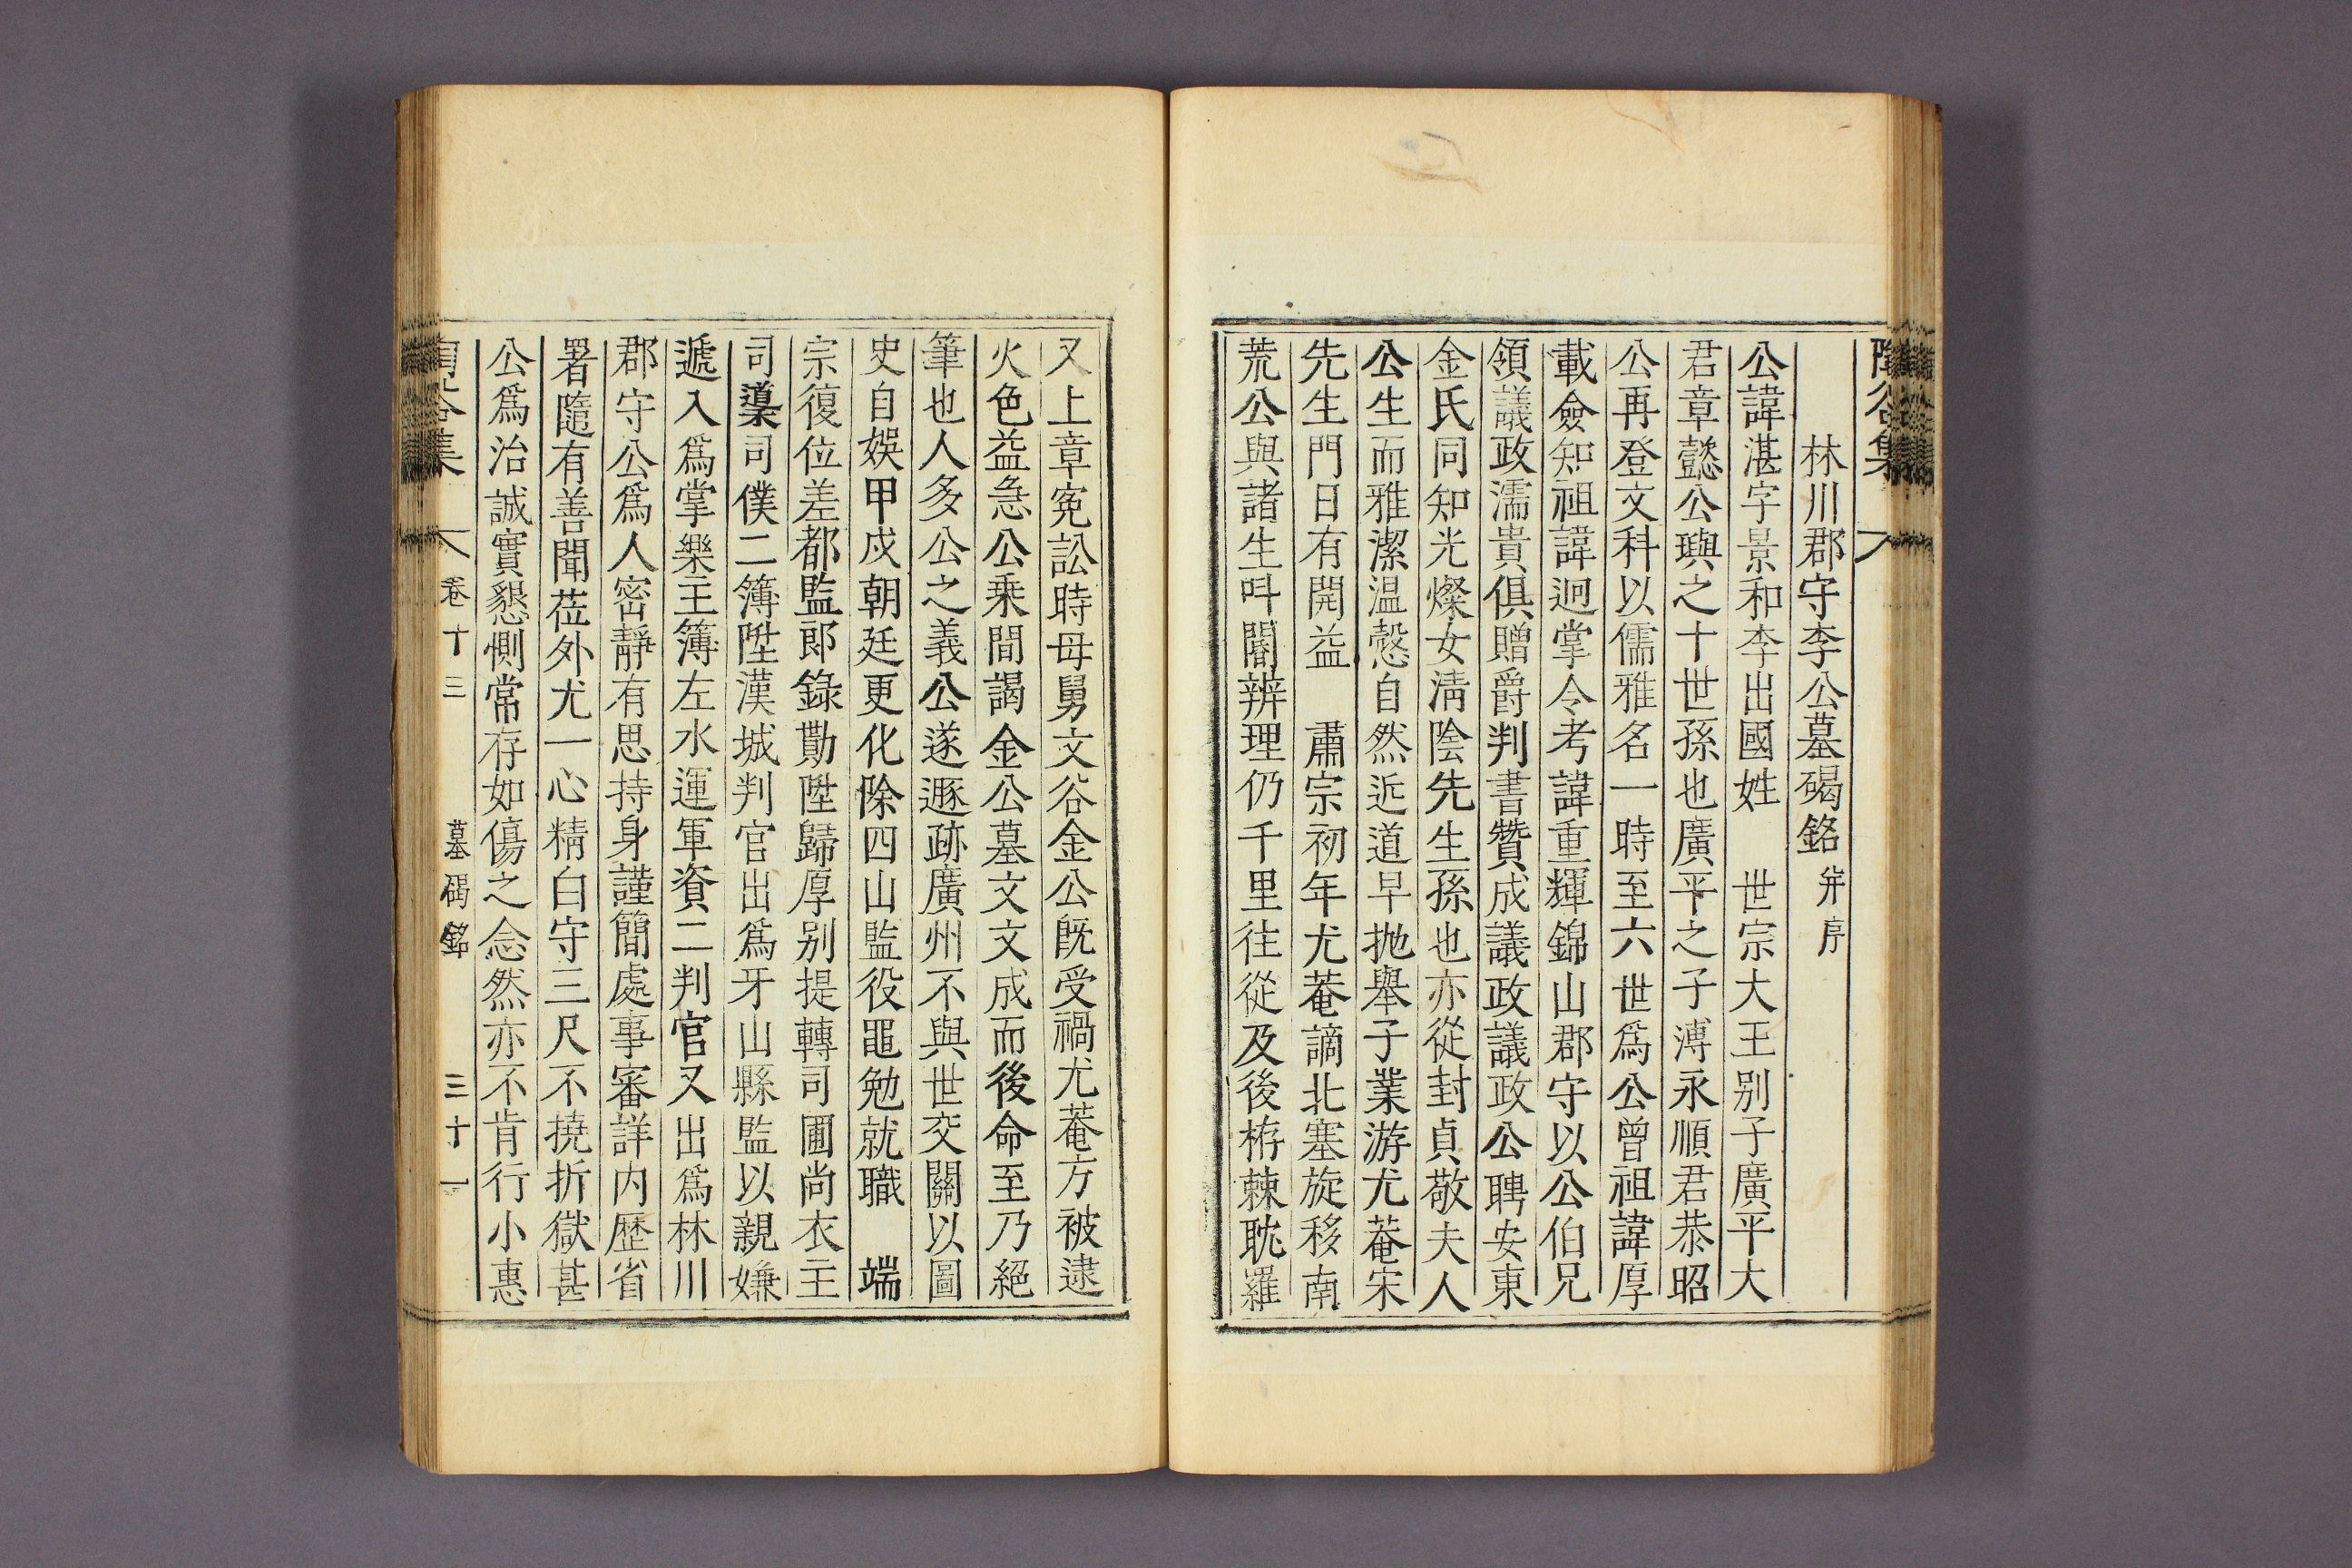 陶谷集
林川郡守李公墓碣銘 并序
公諱湛字景和李出國姓 世宗大王别子廣平大
君章懿公璵之十世孫也廣平之子溥永順君恭昭
公再登文科以儒雅名一時至六世爲公曾祖諱厚
載僉知祖諱迥掌令考諱重輝錦山郡守以公伯兄
領議政濡貴俱贈爵判書贊成議政議政公聘安東
金氏同知光燦女淸陰先生孫也亦從封貞敬夫人
公生而雅潔温慤自然近道早抛舉子業游尤菴宋
先生門日有開益 肅宗初年尤菴謫北塞旋移南
荒公與諸生呌閽辨理仍千里往從及後栫棘耽羅
又上章寃訟時母舅文谷金公旣受禍尤菴方被逮
火色益急公乗間謁金公墓文文成而後命至乃絕
筆也人多公之義公遂遯跡廣州不與世交關以圖
史自娱甲戌朝廷更化除四山監役黽勉就職 端
宗復位差都監郞錄勩陞歸厚别提轉司圃尚衣主
司䆃司僕二簿陞漢城判官出爲牙山縣監以親嫌
遞入爲掌樂主簿左水運軍資二判官又出爲林川
郡守公爲人密靜有思持身謹簡處事審詳内歷省
署隨有善聞莅外尤一心精白守三尺不撓折獄甚
公爲治誠實懇惻常存如傷之念然亦不肯行小惠
陶谷集 卷十三 墓碣銘 三十一